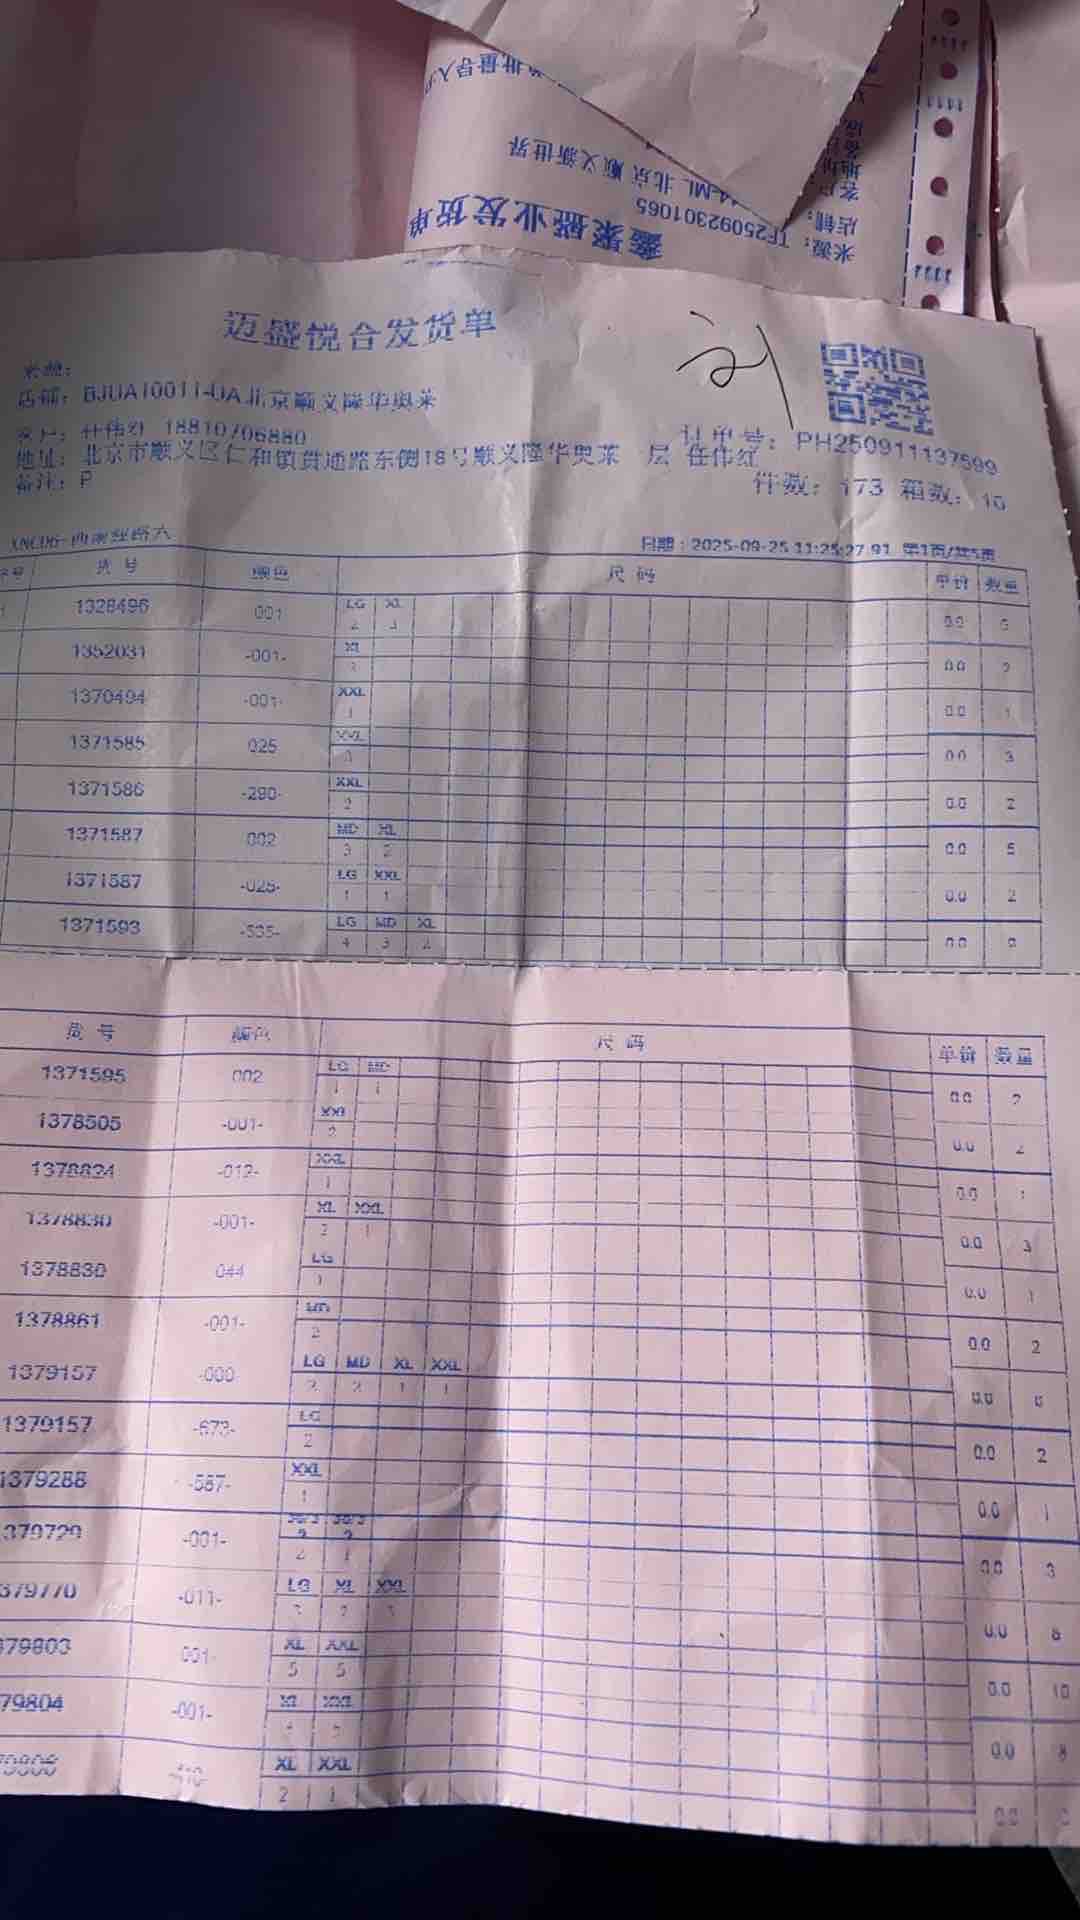 鑫聚盛业发货单
TF25092301065
北京 顺义新世界
来源：
店铺：
客户
地址
迈盛悦合发货单
来源：
店铺： BJUA10011-UA北京顺义隆华奥莱
客户： 任伟红 18810706880
订单号： PH250911137599
地址： 北京市顺义区仁和镇贯通路东侧18号顺义隆华奥莱 层 任伟红
备注： P
件数： 173 箱数： 10
日期：2025-09-25 11:25:27.91 第1页/共5页
序号 货号 颜色 尺码 单价 数量
LG XL
1 1328496 001 2 3 0.0 5
XL
1352031 -001- 0.0 2
XXL
1370494 -001- 1 0.0 1
XXL
1371585 025 3 0.0 3
XXL
1371586 -290- 2 0.0 2
MD XL
1371587 002 3 2 0.0 5
LG XXL
1371587 -025- 1 1 0.0 2
LG MD XL
1371593 -535- 4 3 2 0.0 9
货号 颜色 尺码 单价 数量
LG MD
1371595 002 1 1 0.0 2
XXL
1378505 -001- 2 0.0 2
XXL
1378824 -012- 1 0.0 1
XL XXL
1378830 -001- 2 1 0.0 3
LG
1378830 044 1 0.0 1
MD
1378861 -001- 2 0.0 2
LG MD XL XXL
1379157 -000 2 2 1 1 0.0 6
LG
1379157 -673- 2 0.0 2
XXL
1379288 -587- 1 0.0 1
379729 -001- 2 1 0.0 3
LG XL XXL
379770 -011- 3 2 3 0.0 8
XL XXL
79803 001- 5 5 0.0 10
XL XXL
79804 -001- 0.0 8
XL XXL
2 1 0.0